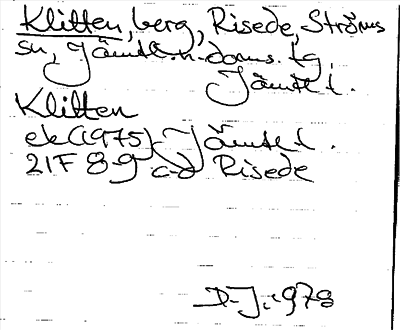 Klitten, berg, Risede, Ströms
sn, Jämtl. n. doms. tg,
Jämtl l.
Klitten
ek (1975) Jämtl l.
21F 8-9 c-d Risede
D-J. 1978